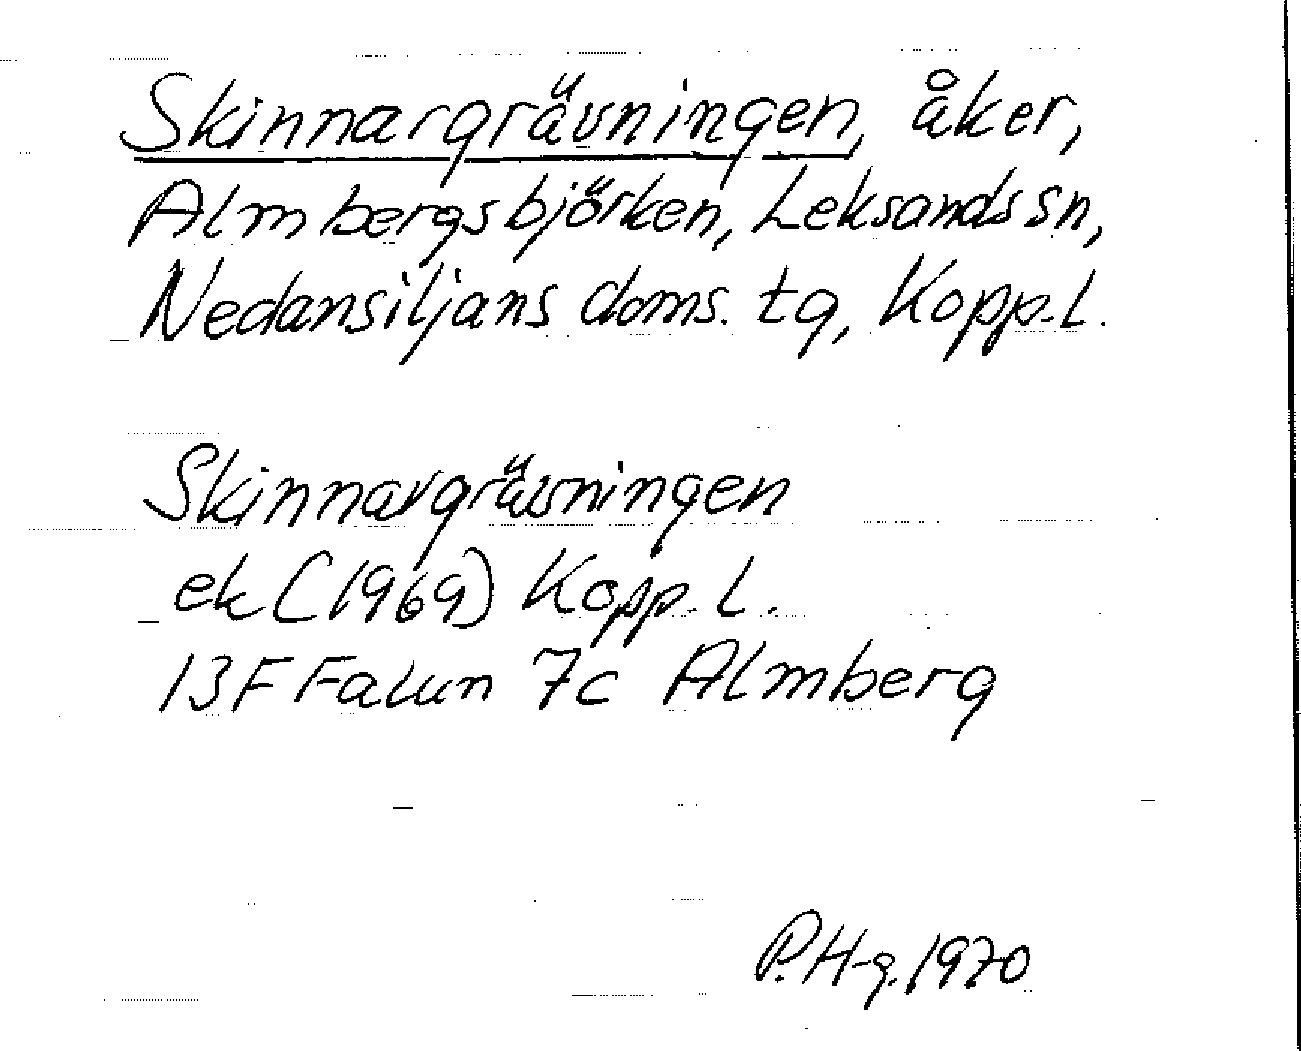 Skinnargrävningen, åker,
Almbergsbjörken, Leksands sn,
Nedansiljans doms. tg, Kopp. L.
Skinnargrävningen
ek (1969) Kopp. L.
13F Falun 7c Almberg
P.H-g. 1970